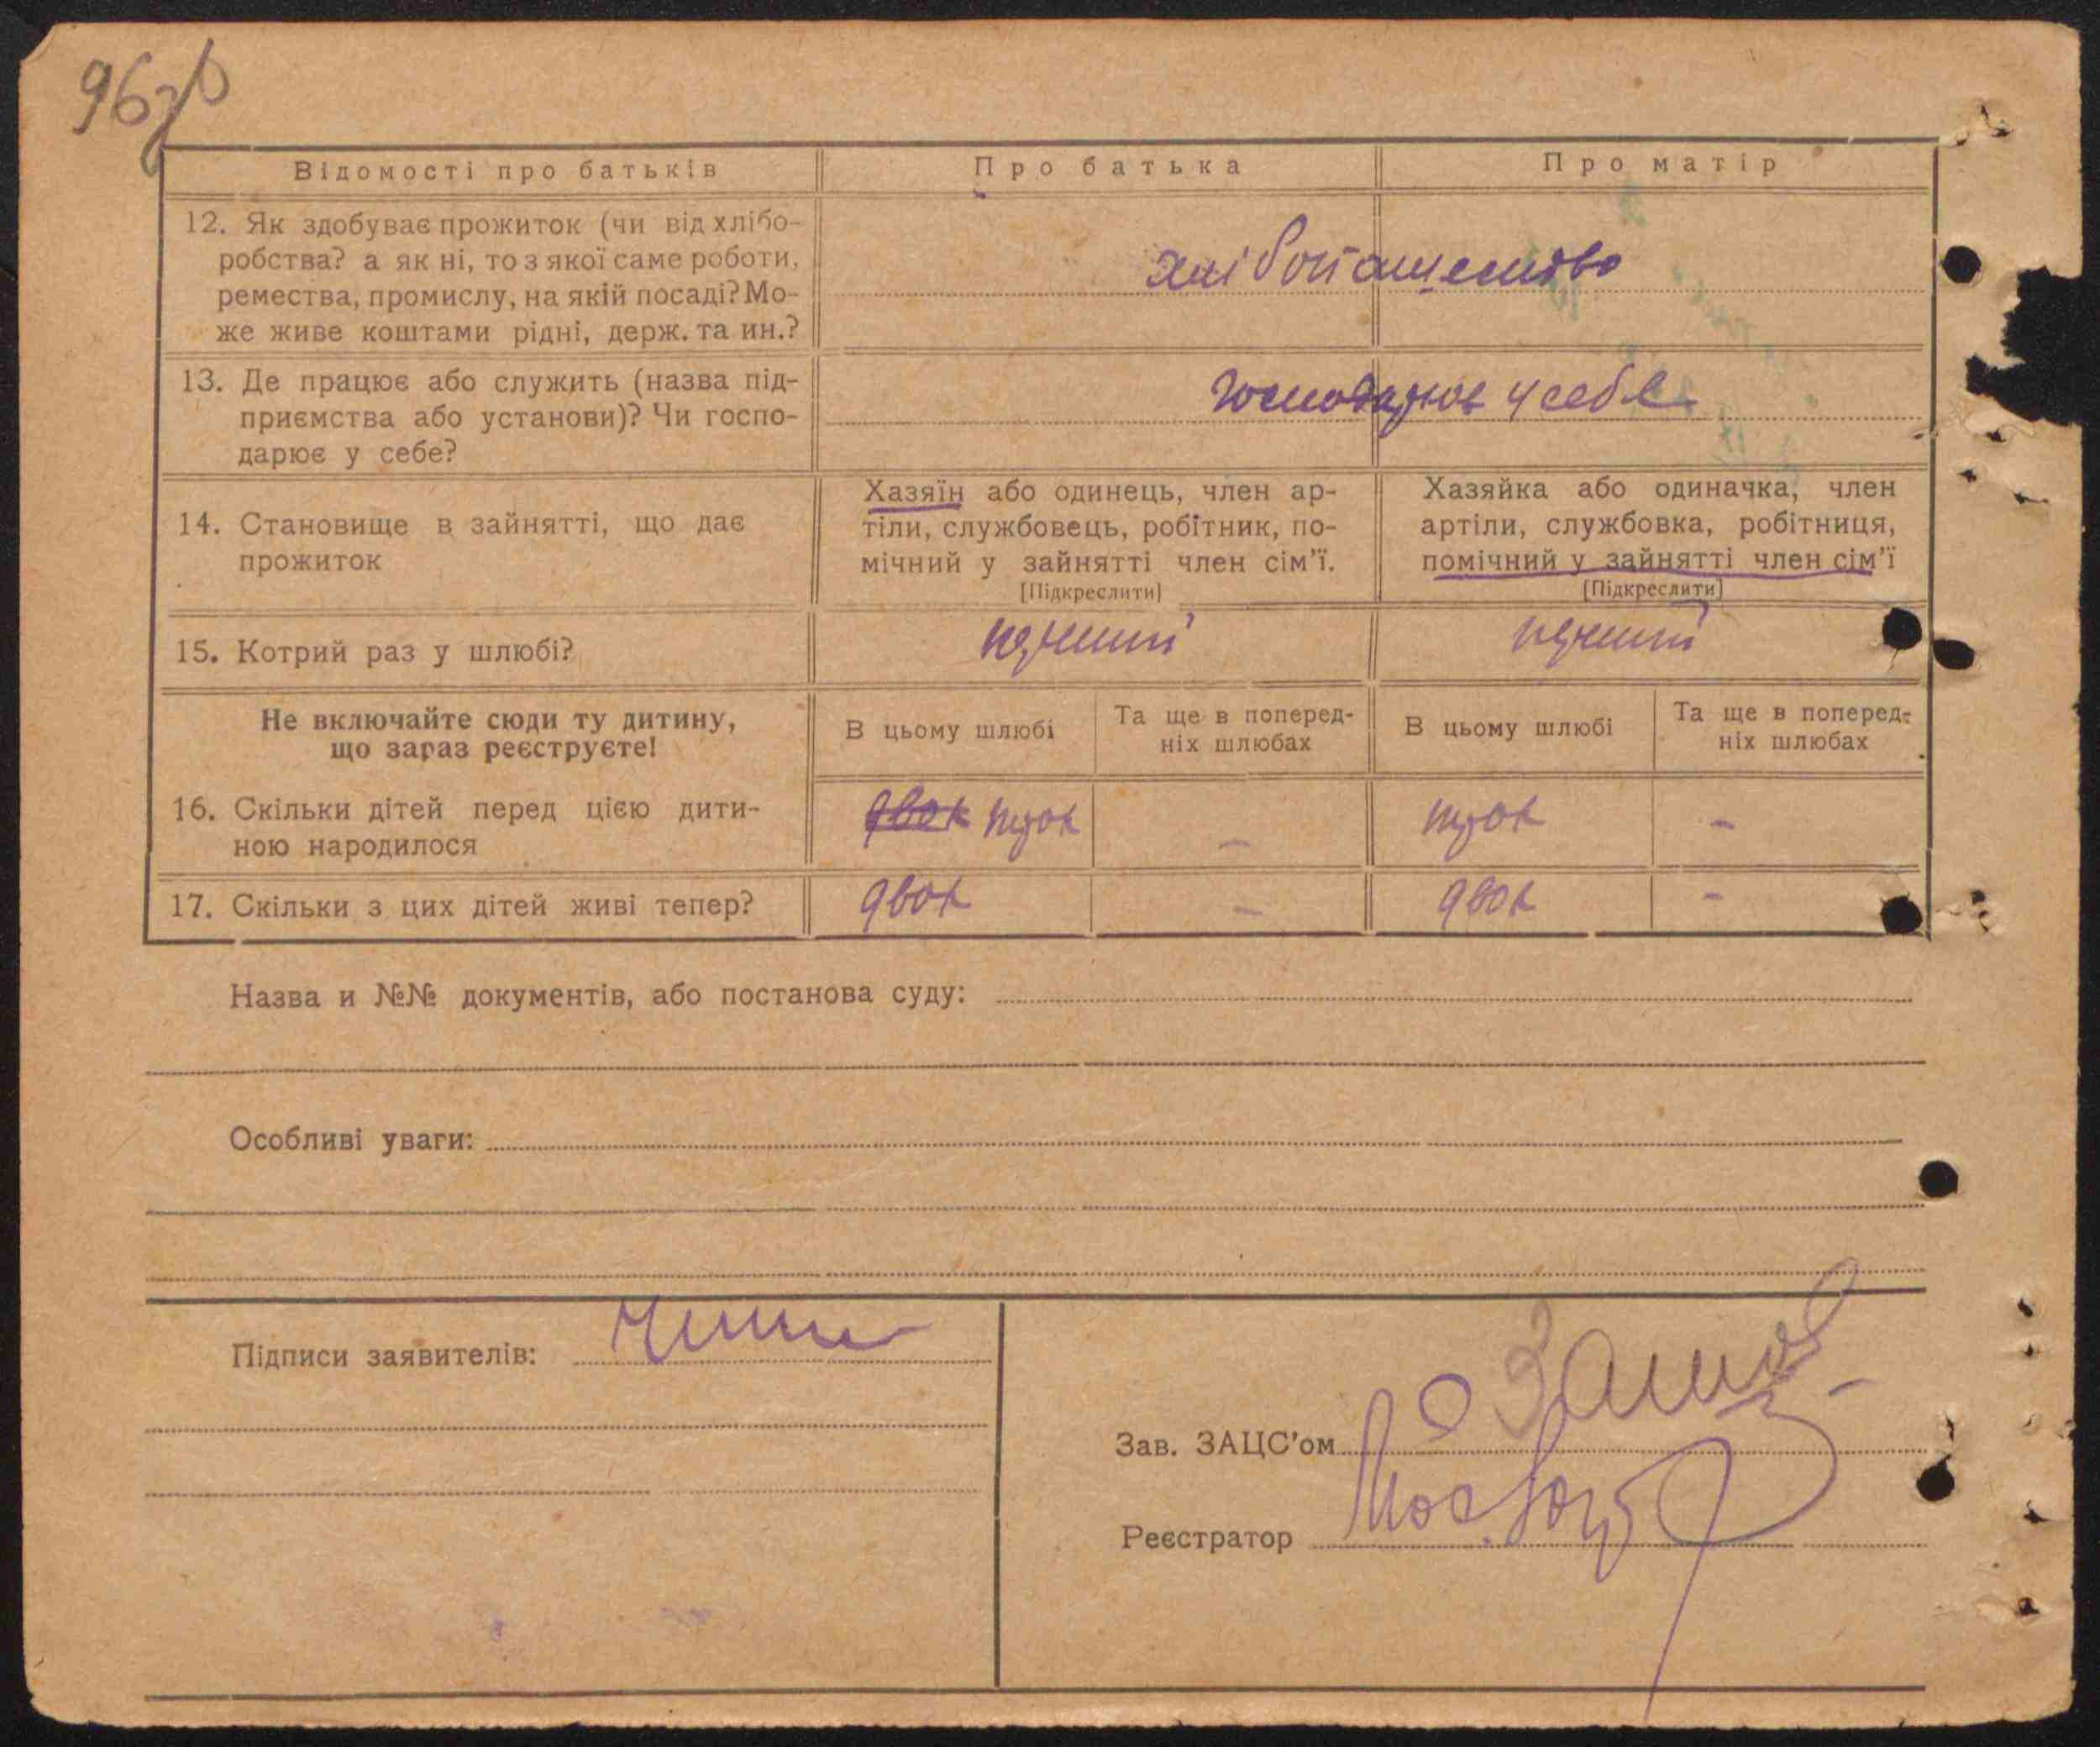 96зв
Відомості про батьків
Про батька
Про матір
12. Як здобуває прожиток (чи від хлібо-
робства? а як ні, то з якої саме роботи,
ремества, промислу, на якій посаді? Мо-
же живе коштами рідні, держ. та ин.?
хлібопашество
13. Де працює або служить (назва під-
приємства або установи)? Чи госпо-
дарює у себе?
господарює у себе
14. Становище в зайнятті, що дає
прожиток
Хазяїн або одинець, член ар-
тіли, службовець, робітник, по-
мічний у зайнятті член сім'ї.
[Підкреслити]
Хазяйка або одиначка, член
артіли, службовка, робітниця,
помічний у зайнятті член сім'ї
[Підкреслити]
15. Котрий раз у шлюбі?
перший
перший
Не включайте сюди ту дитину,
що зараз реєструєте!
В цьому шлюбі
Та ще в поперед-
ніх шлюбах
В цьому шлюбі
Та ще в поперед-
ніх шлюбах
16. Скільки дітей перед цією дити-
ною народилося
двох трох
–
трох
–
17. Скільки з цих дітей живі тепер?
двох
–
двох
–
Назва и №№ документів, або постанова суду:
Особливі уваги:
Підписи заявителів:
Зав. ЗАЦС'ом
Реєстратор